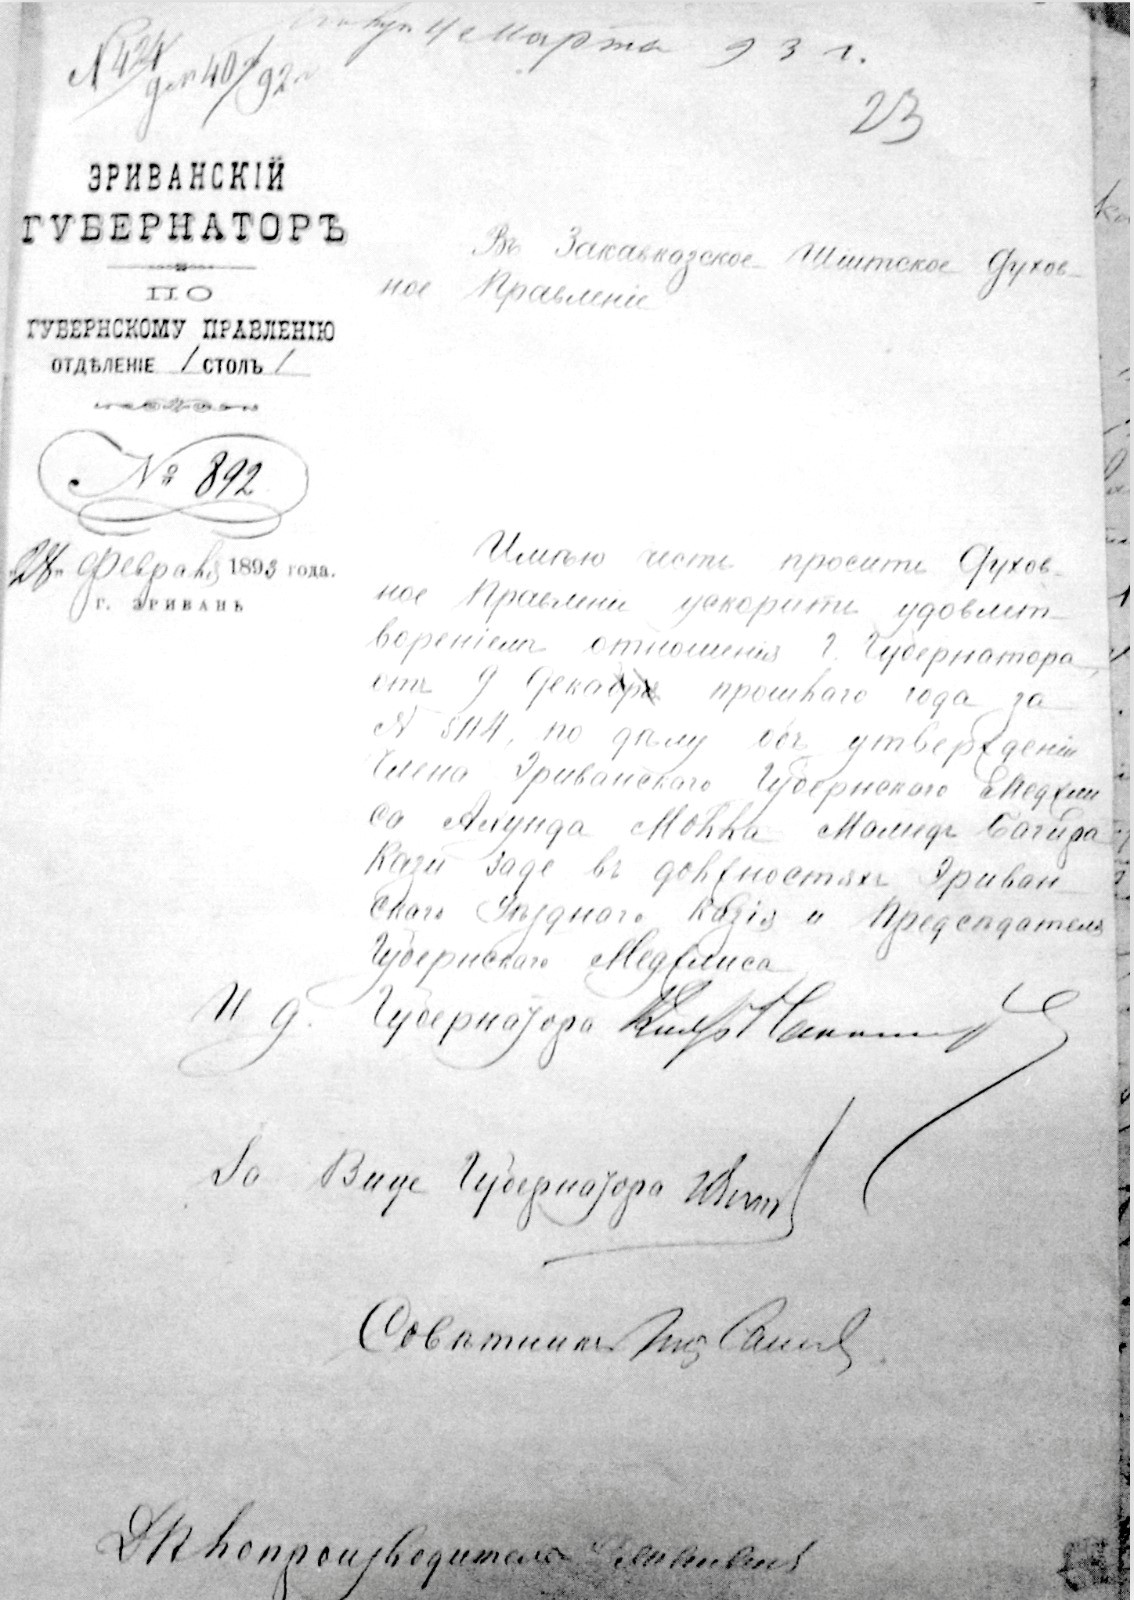 Марта 93 г.
№ 424
40/92
23
ЭРИВАНСКІЙ
ГУБЕРНАТОРЪ
ПО
ГУБЕРНСКОМУ ПРАВЛЕНІЮ
ОТДѢЛЕНІЕ 1 СТОЛЪ 1
№ 892
Февраля 1893 года.
Г. ЭРИВАНЬ
Въ Закавказское Шіитское Духов-
ное Правленіе
Имѣю честь просить Духов-
ное Правленіе ускорить удовлет-
вореніемъ отношенія Г. Губернатора,
отъ 9 Декабря прошлаго года за
№ 5114, по дѣлу объ утвержденіи
Члена Эриванскаго Губернскаго Меджли
са Ахунда Молла Мамедъ Багира
Кази Заде въ должностяхъ Эриван-
скаго Уѣзднаго Казія и Предсѣдателя
Губернскаго Меджлиса
И д. Губернатора
За Вице Губернатора
Совѣтникъ
Дѣлопроизводитель